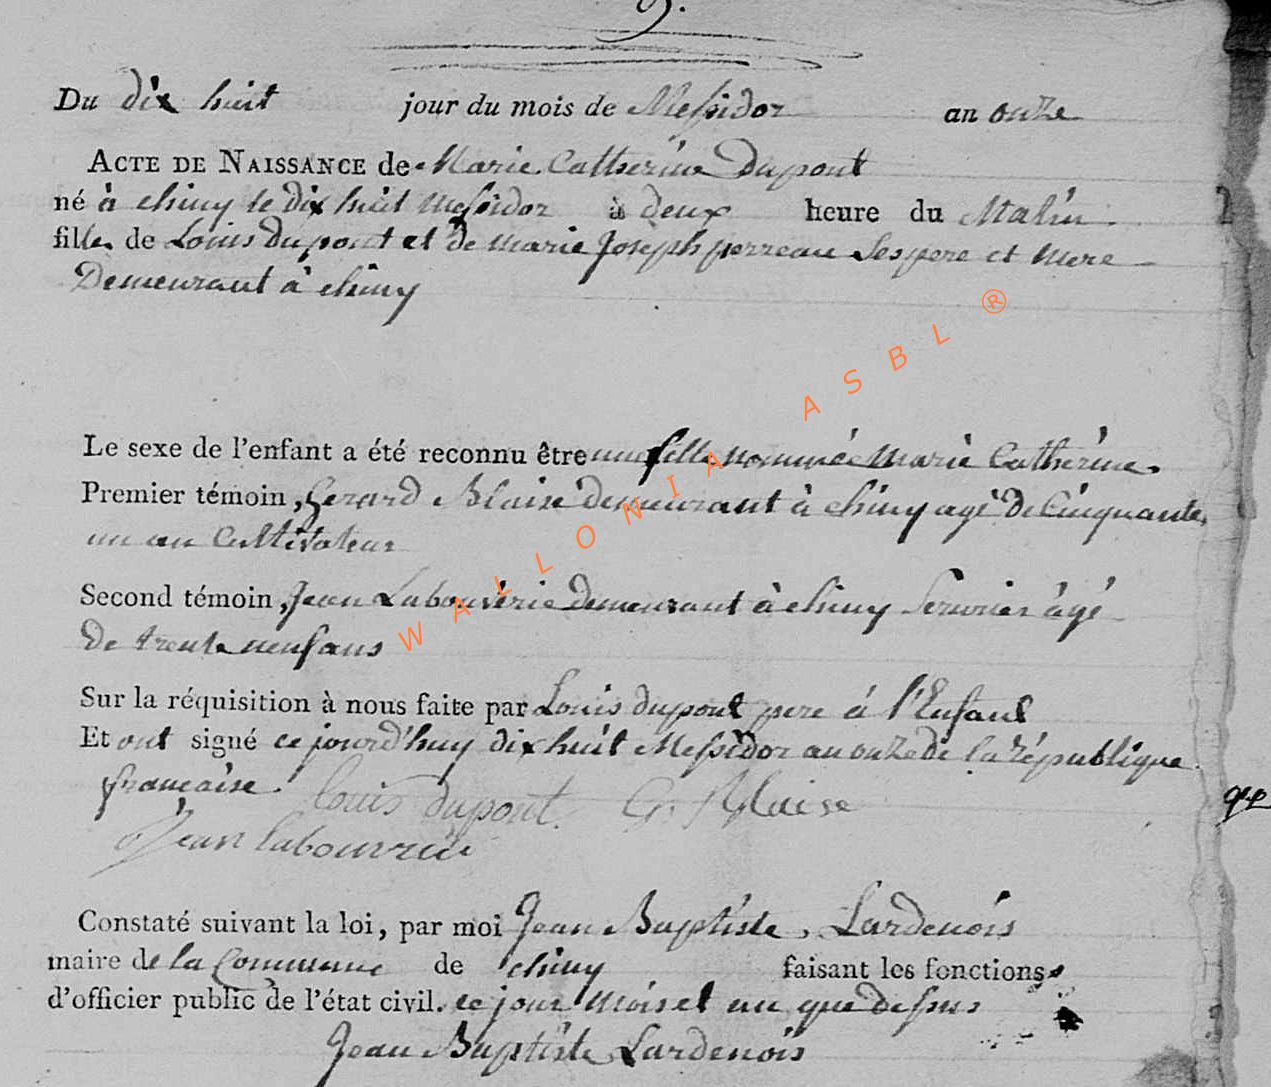 9.
Du dix huit jour du mois de Messidor an onze
ACTE DE NAISSANCE de Marie Catherine Dupont
né à chiny le dix huit Messidor à deux heure du Matin
fille de Louis dupont et de marie Joseph perreau Ses pere et mere
Demeurant à chiny
Le sexe de l'enfant a été reconnu être une fille nommée Marie Catherine.
Premier témoin, Gerard Blaise demeurant à chiny agé de Cinquante
un an Cultivateur
Second témoin, Jean Labouverie demeurant à chiny Serurier âgé
de trente neuf ans
Sur la réquisition à nous faite par Louis dupont pere à l'Enfant
Et ont signé ce jourd'huy dix huit Messidor an onze de la république
française.
Louis dupont. G. Blaise
Jean labouverie
Constaté suivant la loi, par moi Jean Baptiste Lardenois
maire de la Commune de chiny faisant les fonctions
d'officier public de l'état civil. ce jour mois et an que dessus
Jean Baptiste Lardenois
WALLONIA ASBL ®